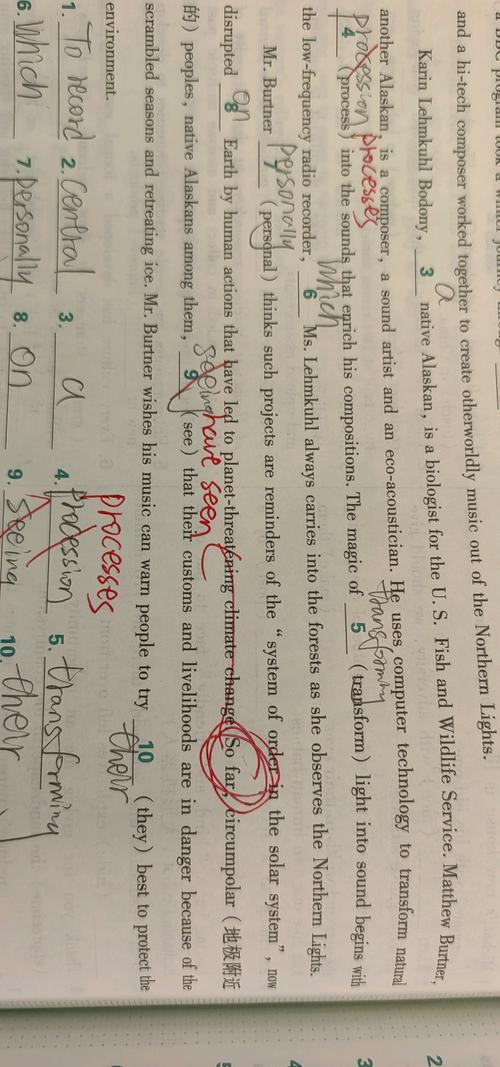 and a hi-tech composer worked together to create otherworldly music out of the Northern Lights.
Karin Lehmkuhl Bodony, 3 a native Alaskan, is a biologist for the U. S. Fish and Wildlife Service. Matthew Burtner,
another Alaskan, is a composer, a sound artist and an eco-acoustician. He uses computer technology to transform natural
procession processes
4 (process) into the sounds that enrich his compositions. The magic of 5 transforming (transform) light into sound begins with
the low-frequency radio recorder, 6 which Ms. Lehmkuhl always carries into the forests as she observes the Northern Lights.
Mr. Burtner 7 personally (personal) thinks such projects are reminders of the “system of order in the solar system”, now
disrupted 8 on Earth by human actions that have led to planet-threatening climate change. So far, circumpolar (地极附近
的) peoples, native Alaskans among them, 9 seeing have seen (see) that their customs and livelihoods are in danger because of the
scrambled seasons and retreating ice. Mr. Burtner wishes his music can warn people to try 10 their (they) best to protect the
environment.
processes
1. To record 2. central 3. a 4. procession 5. transforming
6. which 7. personally 8. on 9. seeing 10. their
2
3
4
5